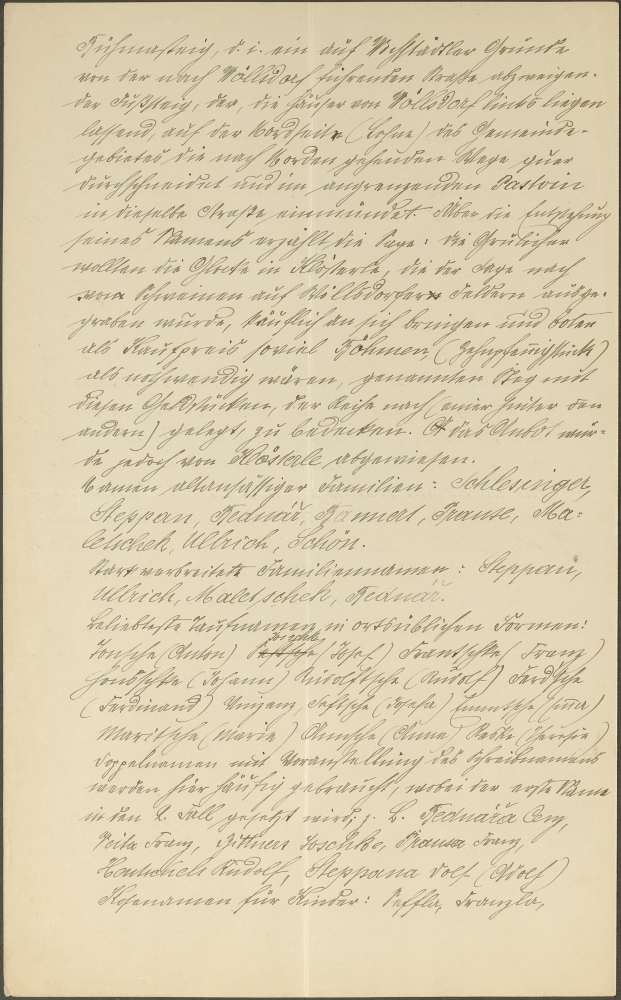 Kuhmasteig, d. i. ein auf Michstädtler Grunde
von der nach Völlsdorf führenden Straße abzweigen-
der Fußsteig, der, die Häuser von Völlsdorf links liegen
lassend, auf der Nordseite (Lehne) des Gemeinde-
gebietes die nach Norden gehenden Wege quer
durchschneidet und im angrenzenden Pastvin
in dieselbe Straße einmündet. Über die Entstehung
seines Namens erzählt die Sage: die Grulicher
wollten die Glocke in Klösterle, die der Sage nach
von Schweinen auf Wöllsdorfer Feldern ausge-
graben wurde, käuflich an sich bringen und boten
als Kaufpreis soviel Böhmen (Zehnpfennigstück)
als notwendig wären, genannten Steg mit
diesen Geldstücken, der Reihe nach (einer hinter den
andern) gelegt, zu bedecken. Das Anbot wur-
de jedoch von Klösterle abgewiesen.
Namen altansässiger Familien: Schlesinger,
Steppan, Bednář, Bannert, Prause, Ma-
letschek, Ullrich, Schön.
Stark verbreitete Familiennamen: Steppan,
Ullrich, Maletschek, Bednář.
Beliebteste Taufnamen in ortsüblichen Formen:
Tonsche (Anton) (Josef) Frantschke (Franz)
Honsschke (Johann) Rudolfsche (Rudolf) Ferdsche
(Ferdinand) Vinzenz, Seffsche (Josefa)
Maritsche (Marie) Annsche (Anna) (Theresie)
Doppelnamen mit Voranstellung des Schreibnamens
werden hier häufig gebraucht, wobei der erste Name
in den 2. Fall gesetzt wird; z. B. Bednářa
Veita Franz, Bittner Joschke, Prausa Franz,
Rudolf, Steppana Dolf (Adolf)
Kosenamen für Kinder: Seffla, Franzla,